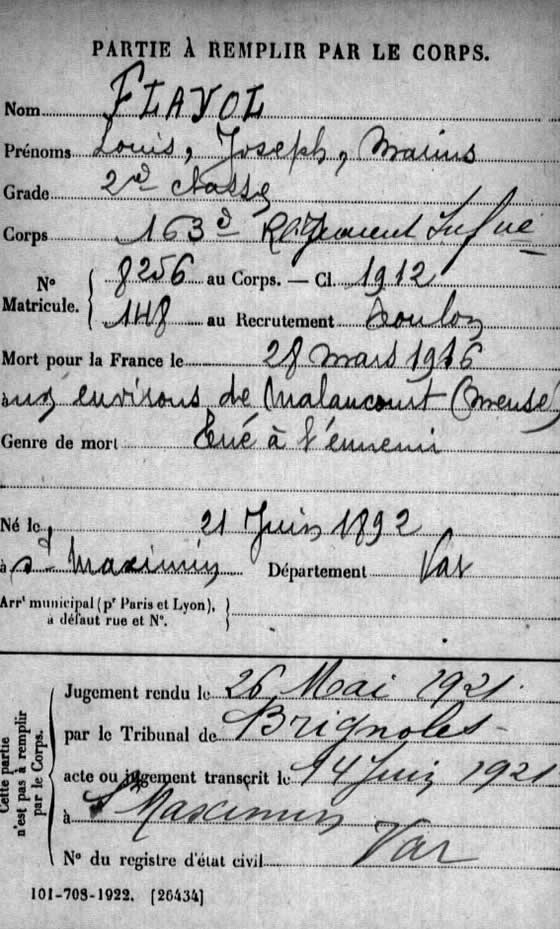 PARTIE À REMPLIR PAR LE CORPS.
Nom FLAYOL
Prénoms Louis, Joseph, Marius
Grade 2e classe
Corps 163e Régiment Infrie
No Matricule. 8256 au Corps. — Cl. 1912
148 au Recrutement Toulon
Mort pour la France le 28 mars 1916
aux environs de Malancourt (Meuse)
Genre de mort Tué à l'ennemi
Né le 21 Juin 1892
à St Maximin Département Var
Arrt municipal (pr Paris et Lyon),
à défaut rue et No.
Cette partie
n'est pas à remplir
par le Corps.
Jugement rendu le 26 Mai 1921
par le Tribunal de Brignoles
acte ou jugement transcrit le 14 Juin 1921
à St Maximin
Var
No du registre d'état civil
101-708-1922. [26434]